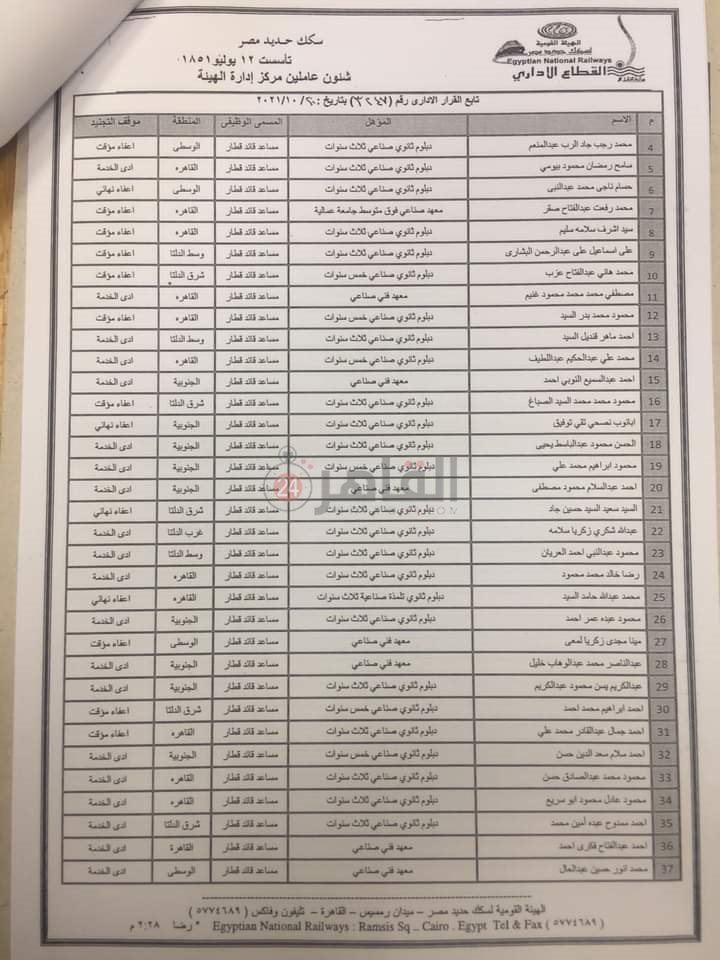 سكك حديد مصر
تأسست ١٢ يوليو ١٨٥١
شئون عاملين مركز إدارة الهيئة
الهيئة القومية
لسكك حديد مصر
Egyptian National Railways
القطاع الاداري
تابع القرار الادارى رقم ( ) بتاريخ : ٢٠٢١/١٠/٢٠
م الاسم المؤهل المسمى الوظيفى المنطقة موقف التجنيد
4 محمد رجب جاد الرب عبدالمنعم دبلوم ثانوي صناعي ثلاث سنوات مساعد قائد قطار الوسطى اعفاء مؤقت
5 سامح رمضان محمود بيومي دبلوم ثانوي صناعي ثلاث سنوات مساعد قائد قطار القاهره ادى الخدمة
6 حسام ناجى محمد عبدالنبى دبلوم ثانوي صناعي ثلاث سنوات مساعد قائد قطار الوسطى اعفاء نهائي
7 محمد رفعت عبدالفتاح صقر معهد صناعي فوق متوسط جامعة عمالية مساعد قائد قطار القاهره اعفاء مؤقت
8 سيد اشرف سلامه سليم دبلوم ثانوي صناعي ثلاث سنوات مساعد قائد قطار القاهره اعفاء مؤقت
9 على اسماعيل على عبدالرحمن البشارى دبلوم ثانوي صناعي ثلاث سنوات مساعد قائد قطار وسط الدلتا اعفاء مؤقت
10 محمد هاني عبدالفتاح عزب دبلوم ثانوي صناعي خمس سنوات مساعد قائد قطار شرق الدلتا اعفاء مؤقت
11 مصطفي محمد محمد محمود غنيم معهد فني صناعي مساعد قائد قطار القاهره ادى الخدمة
12 محمود محمد بدر السيد دبلوم ثانوي صناعي خمس سنوات مساعد قائد قطار القاهره اعفاء مؤقت
13 احمد ماهر قنديل السيد دبلوم ثانوي صناعي ثلاث سنوات مساعد قائد قطار وسط الدلتا ادى الخدمة
14 محمد علي عبدالحكيم عبداللطيف دبلوم ثانوي صناعي خمس سنوات مساعد قائد قطار القاهره ادى الخدمة
15 احمد عبدالسميع النوبي احمد معهد فني صناعي مساعد قائد قطار الجنوبية ادى الخدمة
16 محمود محمد محمد السيد الصباغ دبلوم ثانوي صناعي ثلاث سنوات مساعد قائد قطار شرق الدلتا اعفاء مؤقت
17 ابانوب نصحي تقي توفيق دبلوم ثانوي صناعي ثلاث سنوات مساعد قائد قطار الجنوبية اعفاء نهائي
18 الحسن محمود عبدالباسط يحيى دبلوم ثانوي صناعي ثلاث سنوات مساعد قائد قطار الجنوبية ادى الخدمة
19 محمود ابراهيم محمد علي دبلوم ثانوي صناعي خمس سنوات مساعد قائد قطار الجنوبية ادى الخدمة
20 احمد عبدالسلام محمود مصطفى معهد فني صناعي مساعد قائد قطار الجنوبية ادى الخدمة
21 السيد سعيد السيد حسين جاد دبلوم ثانوي صناعي ثلاث سنوات مساعد قائد قطار شرق الدلتا اعفاء نهائي
22 عبدالله شكري زكريا سلامه دبلوم ثانوي صناعي ثلاث سنوات مساعد قائد قطار غرب الدلتا ادى الخدمة
23 محمود عبدالنبي احمد العريان دبلوم ثانوي صناعي ثلاث سنوات مساعد قائد قطار وسط الدلتا ادى الخدمة
24 رضا خالد محمد محمود دبلوم ثانوي صناعي ثلاث سنوات مساعد قائد قطار القاهره ادى الخدمة
25 محمد عبدالله حامد السيد دبلوم ثانوي تلمذة صناعية ثلاث سنوات مساعد قائد قطار القاهره اعفاء نهائي
26 محمود عبده عمر احمد دبلوم ثانوي صناعي ثلاث سنوات مساعد قائد قطار الجنوبية ادى الخدمة
27 مينا مجدى زكريا لمعى معهد فني صناعي مساعد قائد قطار الوسطى اعفاء مؤقت
28 عبدالناصر محمد عبدالوهاب خليل معهد فني صناعي مساعد قائد قطار الجنوبية ادى الخدمة
29 عبدالكريم يسن محمود عبدالكريم دبلوم ثانوي صناعي ثلاث سنوات مساعد قائد قطار الجنوبية ادى الخدمة
30 احمد ابراهيم محمد احمد دبلوم ثانوي صناعي ثلاث سنوات مساعد قائد قطار شرق الدلتا اعفاء مؤقت
31 احمد جمال عبدالقادر محمد علي دبلوم ثانوي صناعي ثلاث سنوات مساعد قائد قطار القاهره اعفاء مؤقت
32 احمد سلام سعد الدين حسن دبلوم ثانوي صناعي خمس سنوات مساعد قائد قطار الجنوبية ادى الخدمة
33 محمود محمد عبدالصادق حسن دبلوم ثانوي صناعي ثلاث سنوات مساعد قائد قطار القاهره ادى الخدمة
34 محمود عادل محمود ابو سريع دبلوم ثانوي صناعي ثلاث سنوات مساعد قائد قطار القاهره ادى الخدمة
35 احمد ممدوح عبده أمين محمد دبلوم ثانوي صناعي ثلاث سنوات مساعد قائد قطار شرق الدلتا ادى الخدمة
36 احمد عبدالفتاح فكرى احمد معهد فني صناعي مساعد قائد قطار القاهرة ادى الخدمة
37 محمد انور حسين عبدالعال معهد فني صناعي مساعد قائد قطار الوسطى ادى الخدمة
القاهرة 24
الهيئة القومية لسكك حديد مصر – ميدان رمسيس – القاهرة – تليفون وفاكس ( ٥٧٧٤٦٨٩ )
Egyptian National Railways : Ramsis Sq .. Cairo . Egypt Tel & Fax ( ٥٧٧٤٦٨٩ ) * رضا ٢:٢٨ م